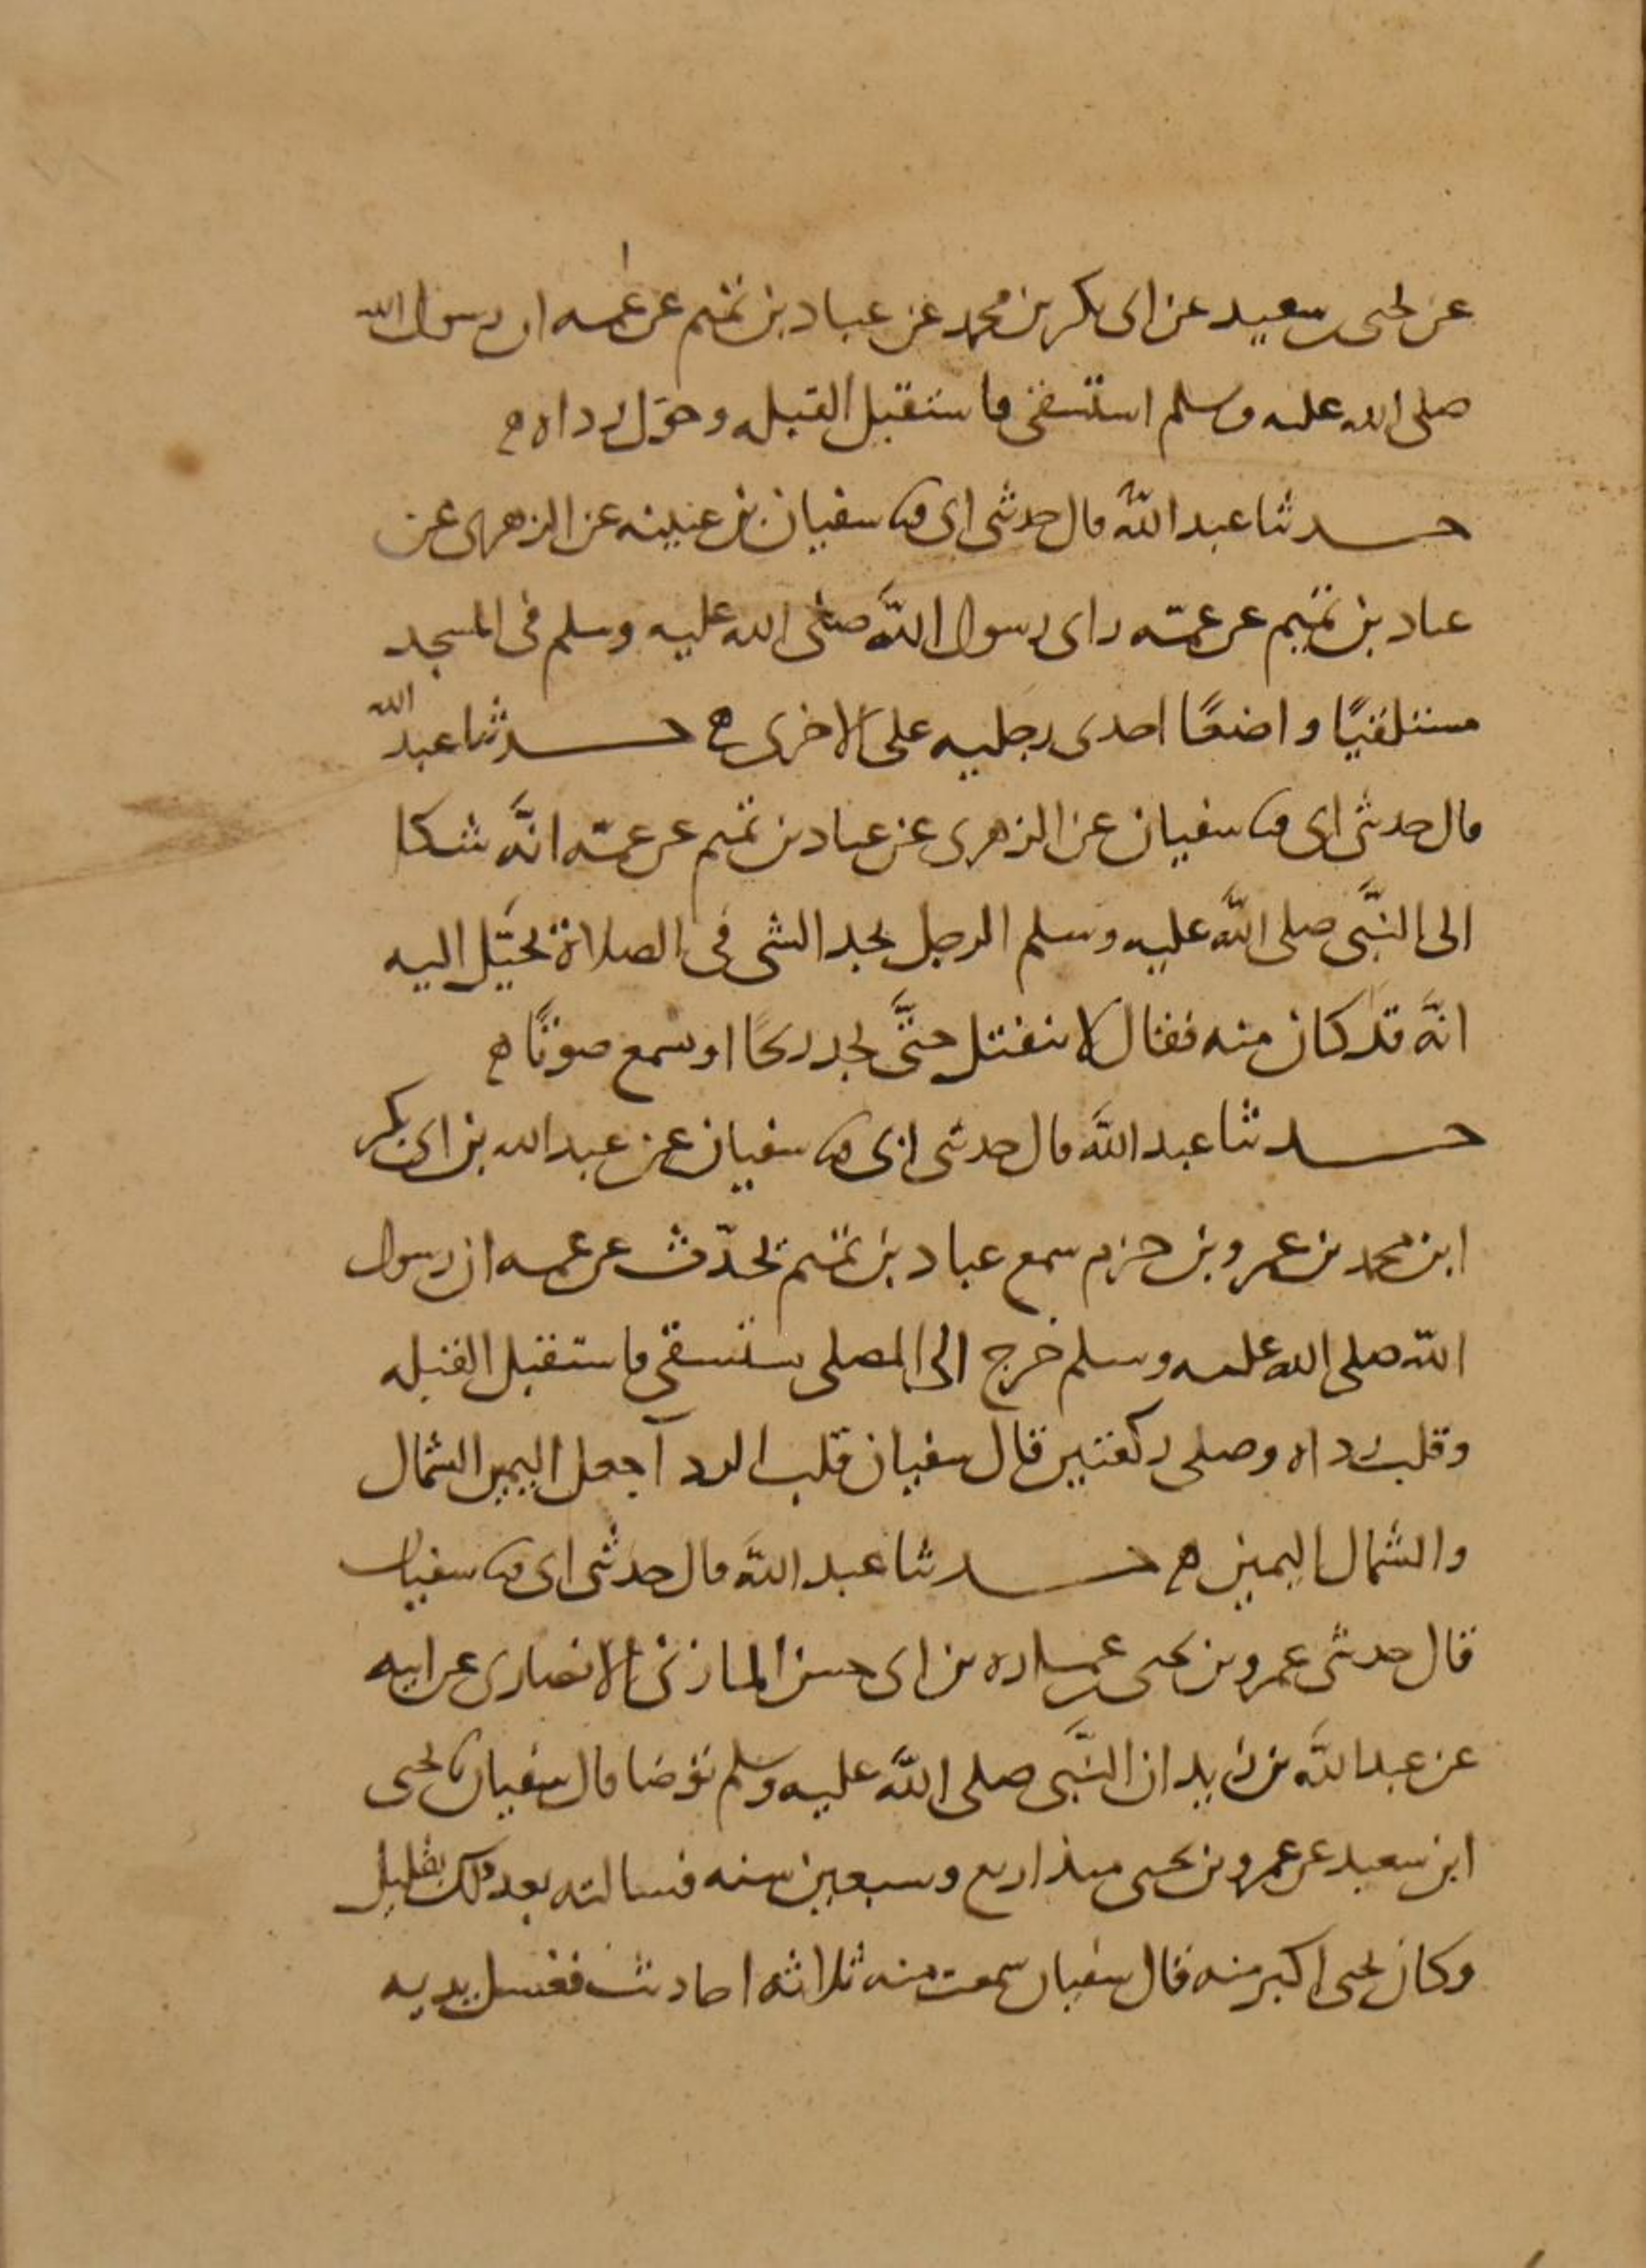 عن يحيى بن سعيد عن ابى بكر بن محمد عن عباد بن تميم عن عمه ان رسول الله
صلى الله عليه وسلم استسقى فاستقبل القبله وحوّل رداه
حدثنا عبد الله قال حدثنى ابى ثنا سفيان بن عيينه عن الزهرى عن
عباد بن تميم عن عمّه راى رسول الله صلى الله عليه وسلم فى المسجد
مستلقيًا واضعًا احدى رجليه على الاخرى حدثنا عبد الله
قال حدثنى ابى ثنا سفيان عن الزهرى عن عباد بن تميم عن عمّه انَّه شكا
الى النبَّى صلى الله عليه وسلم الرجل يجد الشى فى الصلاة يخيّل اليه
انَّه قد كان منه فقال لا ينفتل حتَّى يجد ريحًا او يسمع صوتًا
حدثنا عبد الله قال حدثنى ابى ثنا سفيان عن عبد الله بن ابى بكر
ابن محمد بن عمرو بن حزم سمع عباد بن تميم يحدّث عن عمه ان رسول
الله صلى الله عليه وسلم خرج الى المصلى يستسقى فاستقبل القبله
وقلب رداه وصلى ركعتين قال سفيان قلب الردآ جعل اليمين الشمال
والشمال اليمين حدثنا عبد الله قال حدثنى ابى ثنا سفيان
قال حدثنى عمرو بن يحيى بن عماره بن ابى حسن المازنى الانصارى عن ابيه
عن عبد الله بن زيد ان النبَّى صلى الله عليه وسلم توضا قال سفيان ثنا يحيى
ابن سعيد عن عمرو بن يحيى منذ اربع وسبعين سنه فسالته بعد ذلك بقليل
وكان يحيى اكبر منه قال سفيان سمعت منه ثلاثه احاديث فغسل يديه